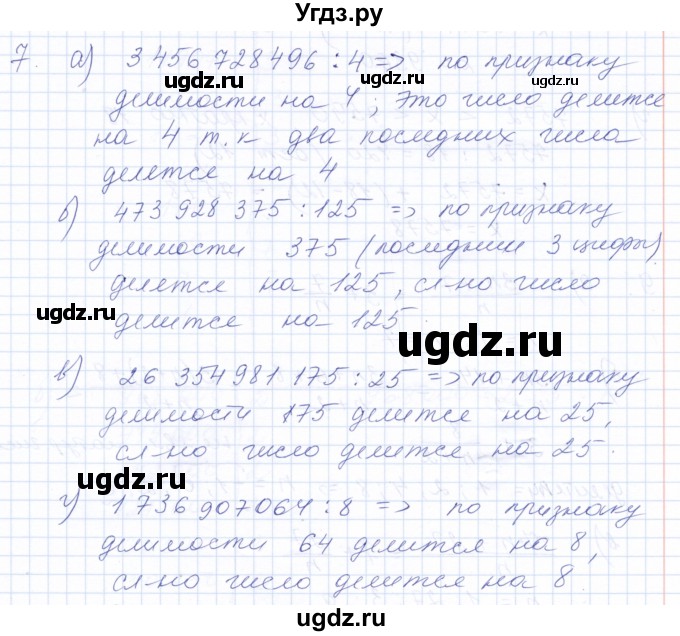 Угдз.ру
7. а) 3 456 728 496 : 4 => по признаку
ugdz.ru ugdz.ru
делимости на 4, это число делится
на 4 т.к два последних числа
делятся на 4
б) 473 928 375 : 125 => по признаку
делимости 375 (последнии 3 цифры)
делятся на 125, сл-но число
ugdz.ru
делится на 125.
ugdz.ru
в) 26 354 981 175 : 25 => по признаку
делимости 175 делится на 25,
сл-но число делится на 25.
ugdz.ru
г) 1 736 907 064 : 8 => по признаку
делимости 64 делится на 8,
ugdz.ru
сл-но число делится на 8.
ugdz.ru